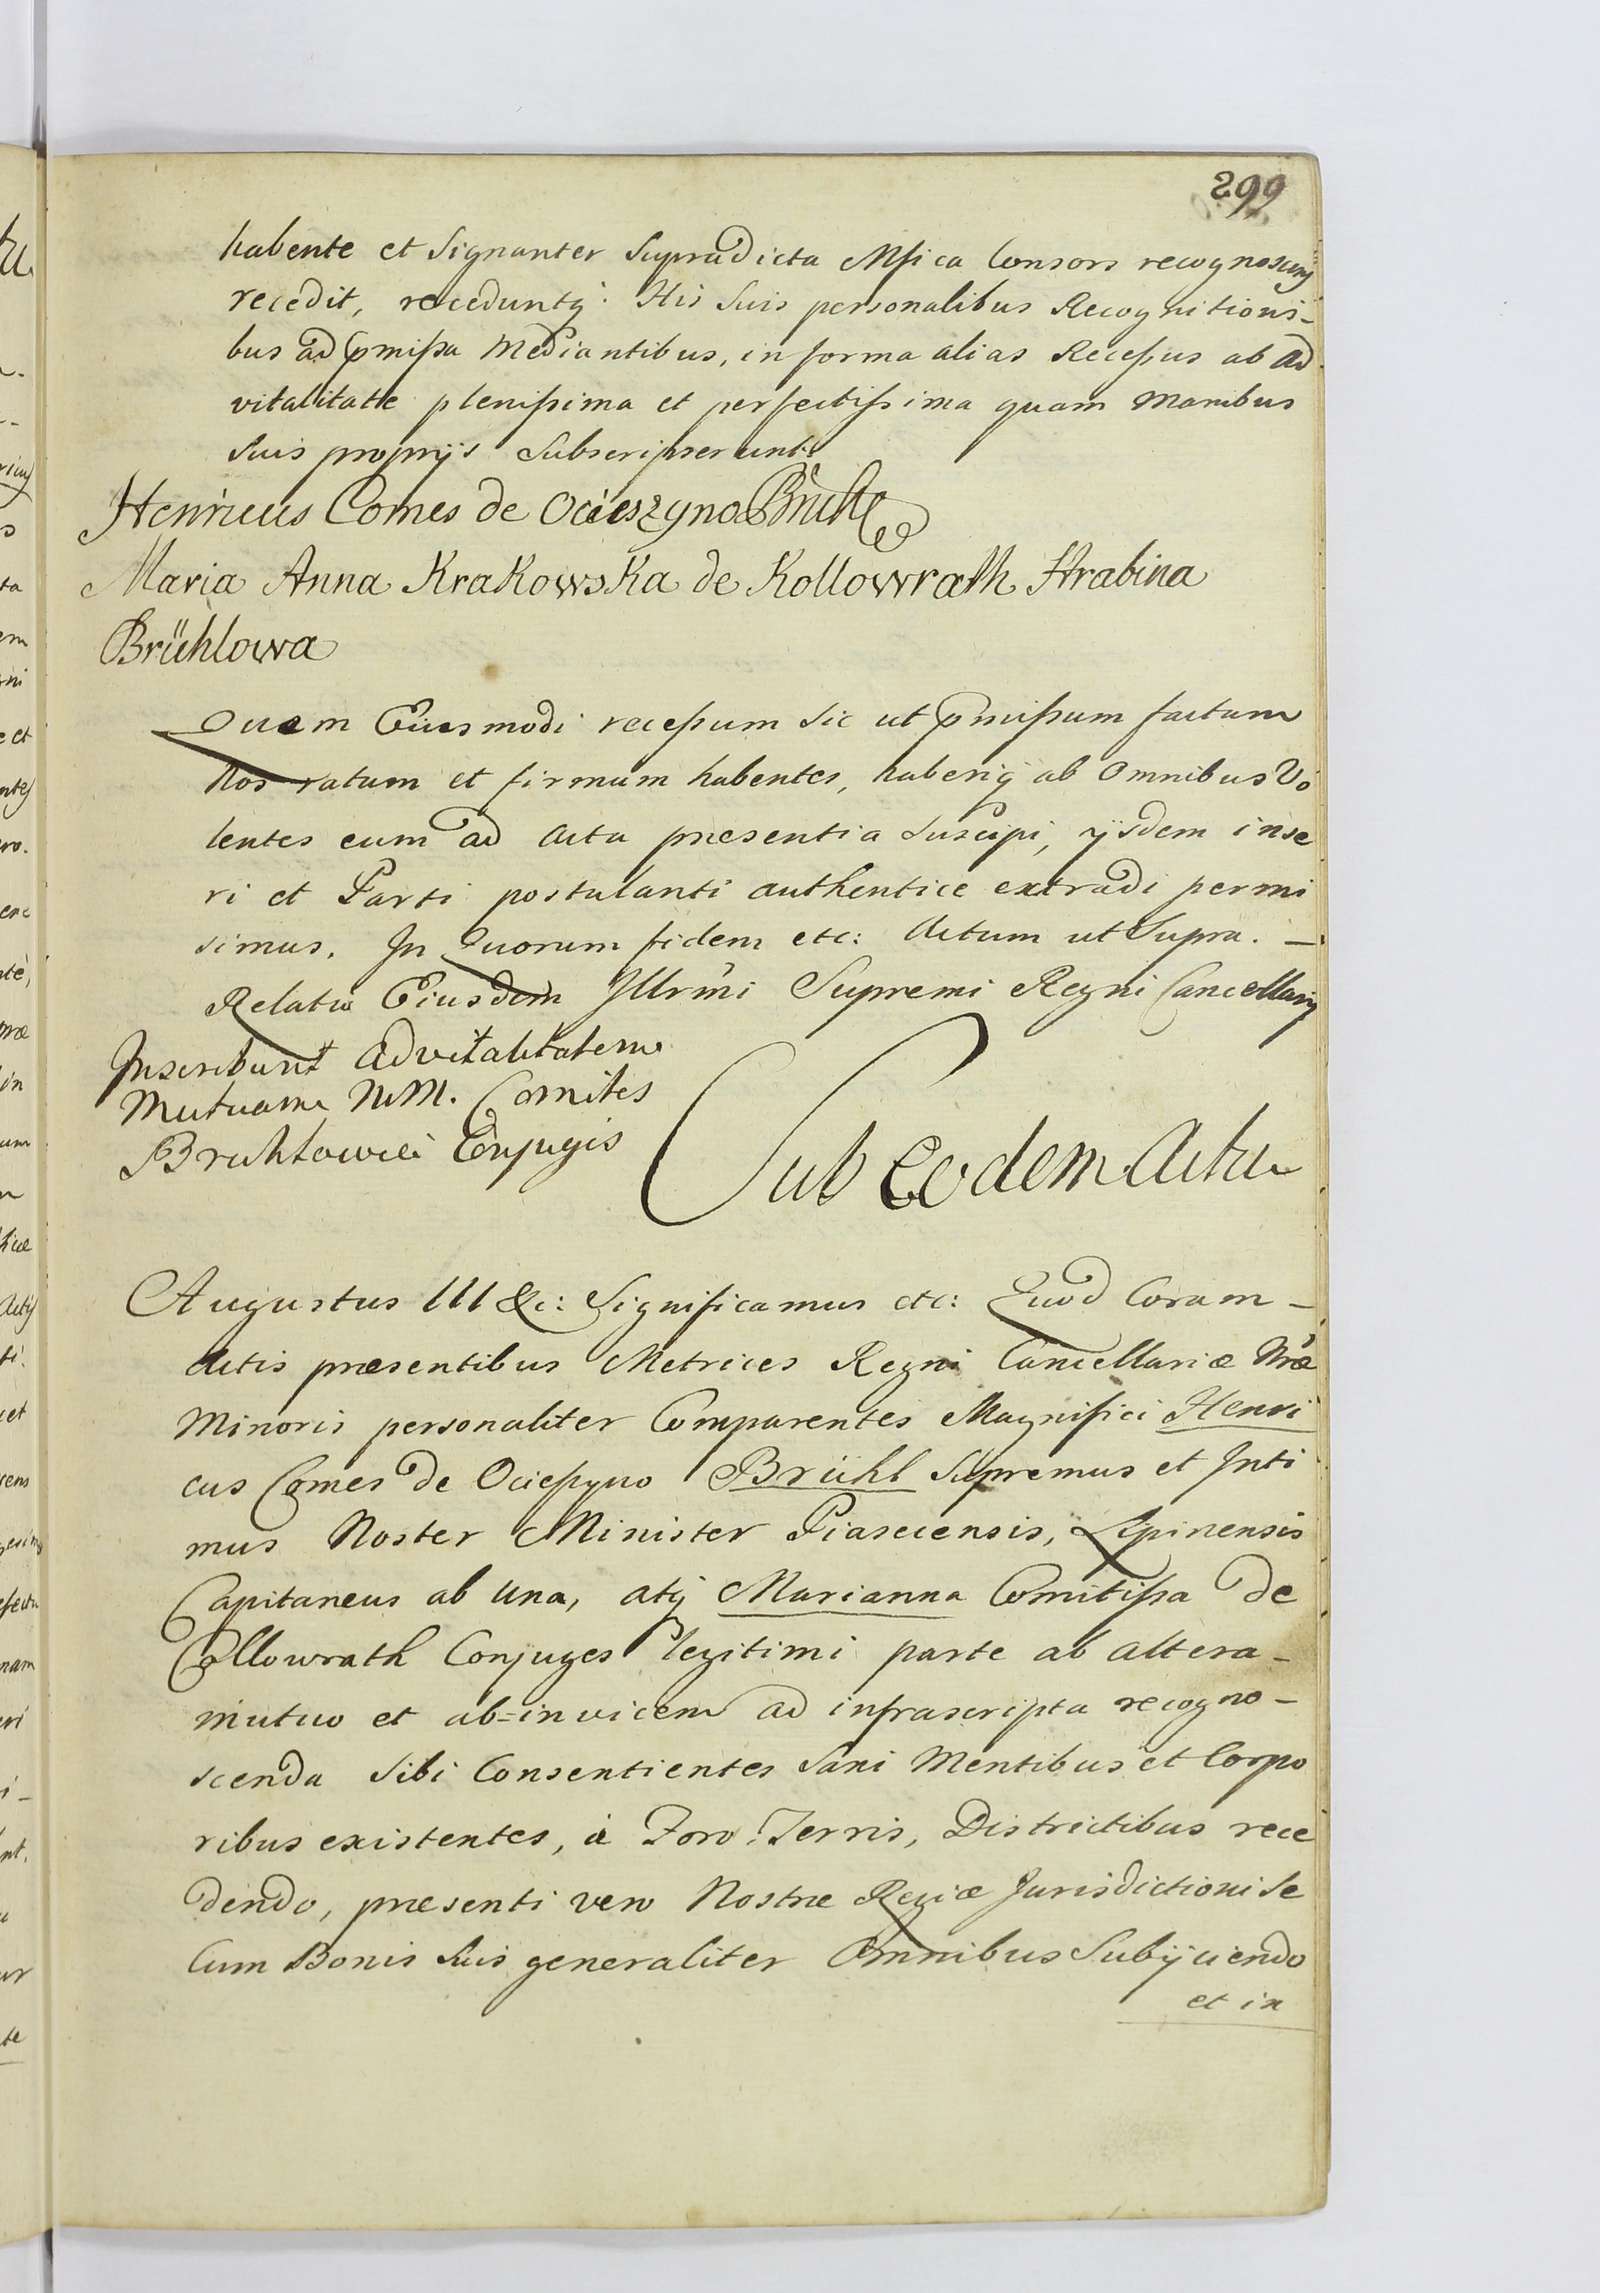 299
habente et Signanter Supradicta Mfica Consors recognoscens
recedit, receduntq: His Suis personalibus Recognitioni-
bus ad pmissa Mediantibus, in forma alias Recessus ab Ad
vitalitate plenissima et perfectissima quam Manibus
Suis proprijs Subscripserunt.
Henricus Comes de Ocieszyno Brühl
Maria Anna Krakowska de Kollowrath Hrabina
Brühlowa
Quem Eiusmodi recessum Sic ut pmissum factum
Nos ratum et firmum habentes, haberiq ab Omnibus Vo
lentes eum ad Acta præsentia Suscipi, ijsdem inse
ri et Parti postulanti authentice extradi permi
simus. In Quorum fidem etc: Actum ut Supra. —
Relatio Eiusdem Illrmi Supremi Regni Cancellarij
Inscribunt Advitalitatem
Mutuam MM. Comites
Bruhlowie Conjugis
Sub Eodem Actu
Augustus III &c: Significamus etc: Quod Coram -
Actis præsentibus Metrices Regni Cancellariæ Nræ
Minoris personaliter Comparentes Magnifici Henri
cus Comes de Ociessyno Brühl Supremus et Inti
mus Noster Minister Piasecensis, Lipinensis
Capitaneus ab Una, atq Marianna Comitissa de
Collowrath Conjuges legitimi parte ab altera -
mutuo et ab=invicem ad infrascripta recogno -
scenda Sibi Consentientes Sani Mentibus et Corpo
ribus existentes, à Foro, Terris, Districtibus rece
dendo, præsenti vero Nostræ Regiæ Jurisdictioni Se
Cum Bonis Suis generaliter Omnibus Subijciendo
et in